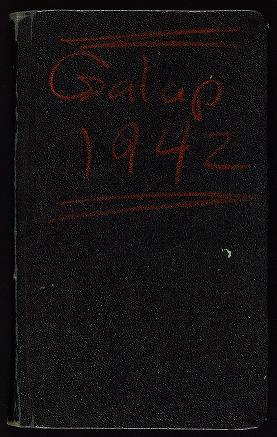 Galap
1942